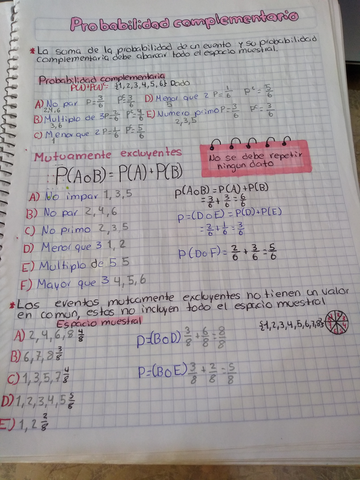 Probabilidad complementaria
* La suma de la probabilidad de un evento y su probabilidad
complementaria debe abarcar todo el espacio muestral.
Probabilidad complementaria
{1,2,3,4,5,6} Dado
A) No par P=3/6 Pᶜ=3/6 D) Menor que 2 P=1/6 Pᶜ=5/6
2,4,6
B) Multiplo de 3 P= E) Numero primo P=3/6 Pᶜ=3/6
3,6 2,3,5
C) Menor que 2 P=1/6 Pᶜ=5/6
1
Mutuamente excluyentes
P(AoB)=P(A)+P(B)
No se debe repetir
ningun dato
A) No impar 1,3,5
P(AoB)=P(A)+P(B)
=3/6+3/6=6/6
B) No par 2,4,6
P=(DoE)=P(D)+P(E)
C) No primo 2,3,5
=2/6+1/6=3/6
D) Menor que 3 1,2
P(DoF)=2/6+3/6=5/6
E) Multiplo de 5 5
F) Mayor que 3 4,5,6
* Los eventos mutuamente excluyentes no tienen un valor
en común, estos no incluyen todo el espacio muestral
Espacio muestral
{1,2,3,4,5,6,7,8}
A) 2,4,6,8 4/8
P=(BoD) 3/8+6/8=8/8
B) 6,7,8 3/8
C) 1,3,5,7 4/8
P=(BoE) 3/8+2/8=5/8
D) 1,2,3,4,5 5/8
E) 1,2 2/8